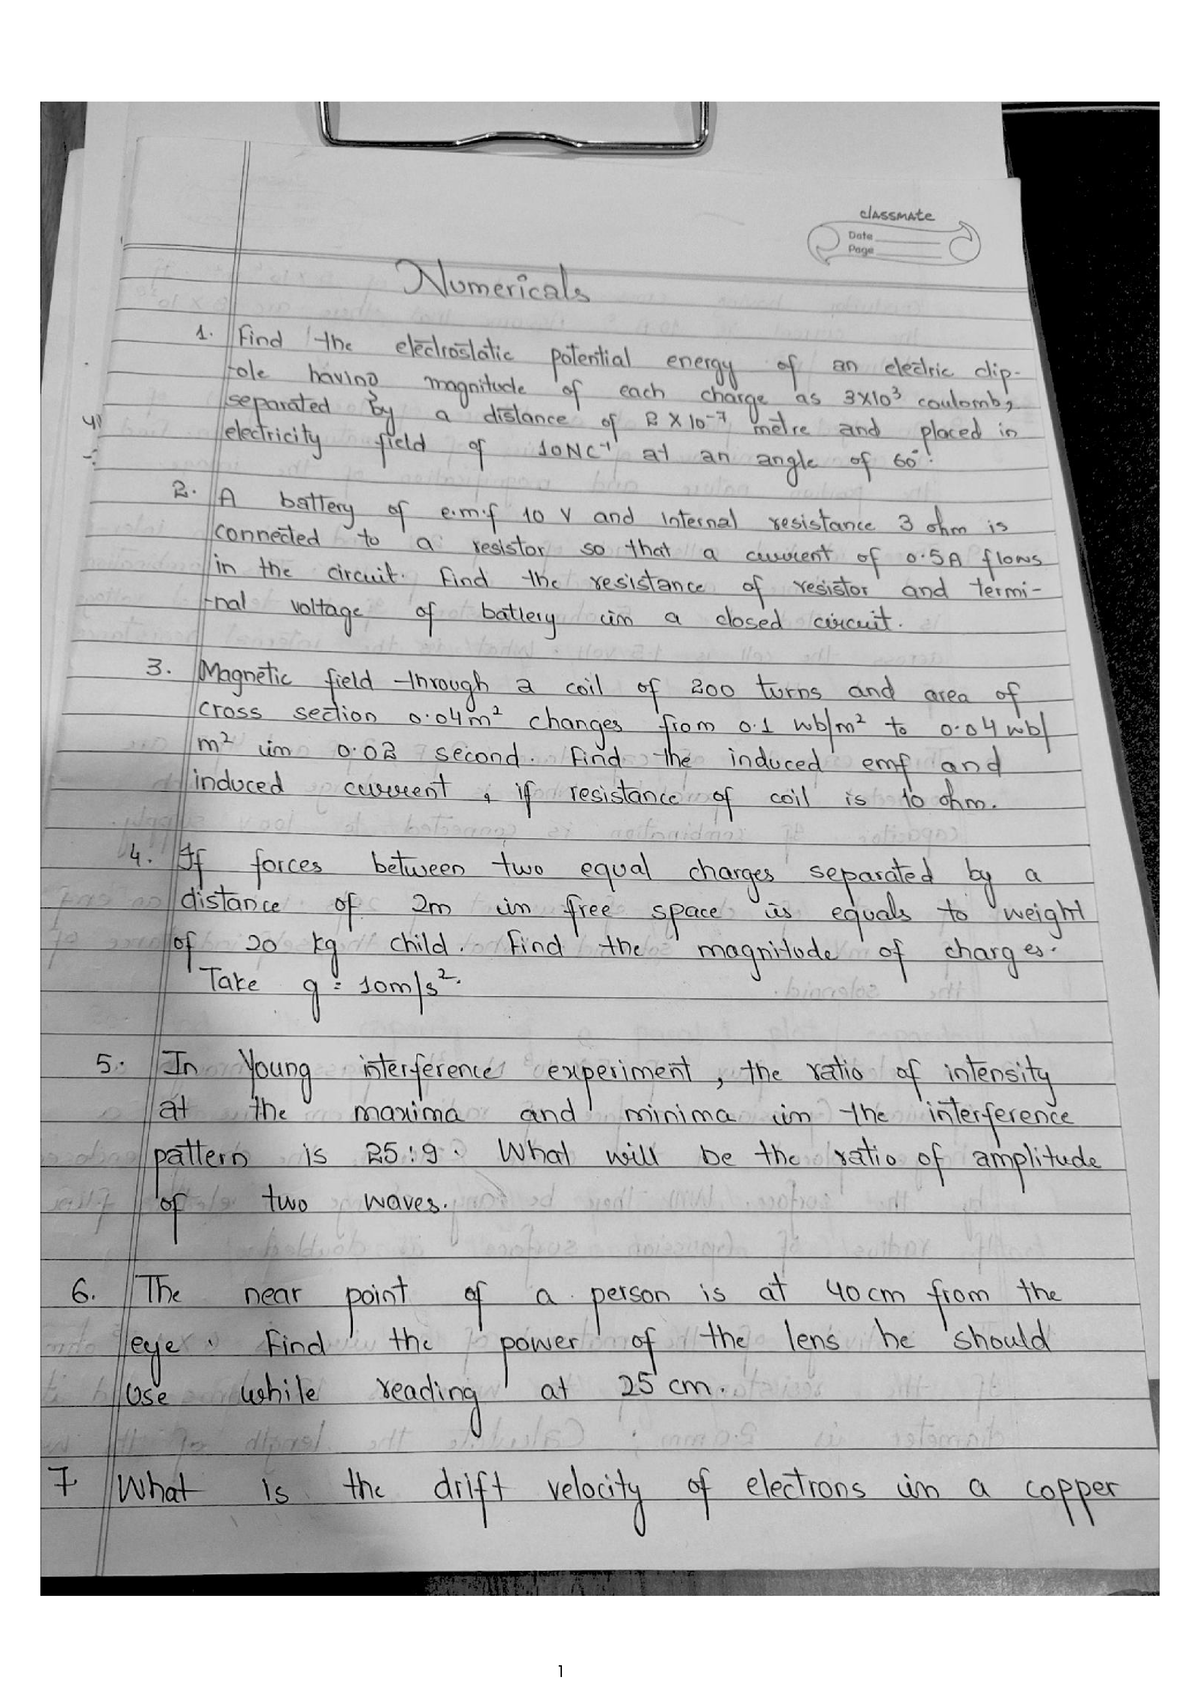 classmate
Date
Page
Numericals
1. Find the electrostatic potential energy of an electric dip-
-ole having magnitude of each charge as 3×10³ coulomb,
separated by a distance of 2 × 10⁻⁷ metre and placed in
electricity field of 10NC⁻¹ at an angle of 60°.
2. A battery of e.m.f 10 V and internal resistance 3 ohm is
connected to a resistor so that a current of 0.5A flows
in the circuit. Find the resistance of resistor and termi-
-nal voltage of battery in a closed circuit.
3. Magnetic field through a coil of 200 turns and area of
cross section 0.04m² changes from 0.1 wb/m² to 0.04 wb/
m² in 0.02 second. Find the induced emf and
induced current, if resistance of coil is 10 ohm.
4. If forces between two equal charges separated by a
distance of 2m in free space is equals to weight
of 20 kg child. Find the magnitude of charges.
Take g = 10m/s².
5. In Young interference experiment, the ratio of intensity
at the maxima and minima in the interference
pattern is 25:9. What will be the ratio of amplitude
of two waves.
6. The near point of a person is at 40cm from the
eye. Find the power of the lens he should
use while reading at 25 cm.
7. What is the drift velocity of electrons in a copper
1